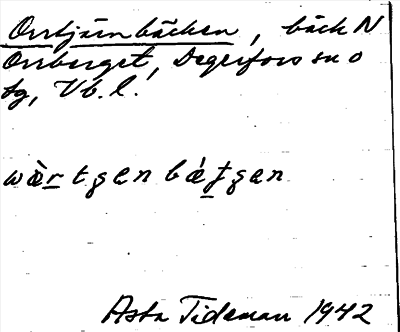 Orrtjärnbäcken, bäck N
Orrberget, Degerfors sn o
tg, Vb. l.
wɑ̀r̲tgen bátgen
Asta Tideman 1942